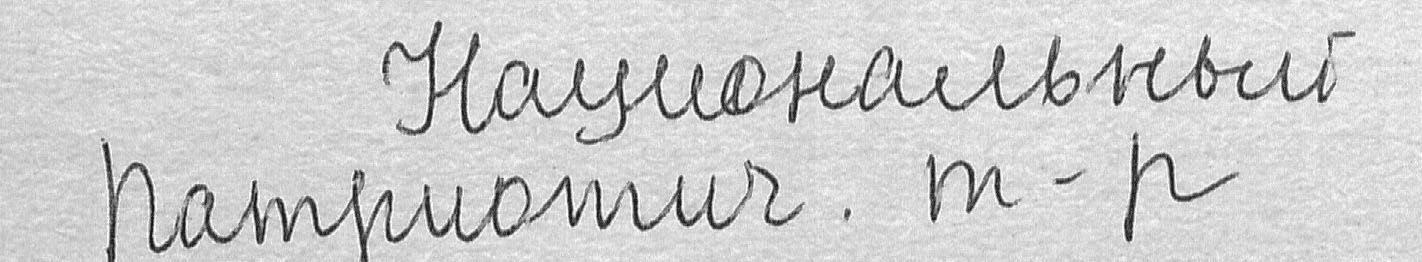 Национальный
Патриотич. т-р